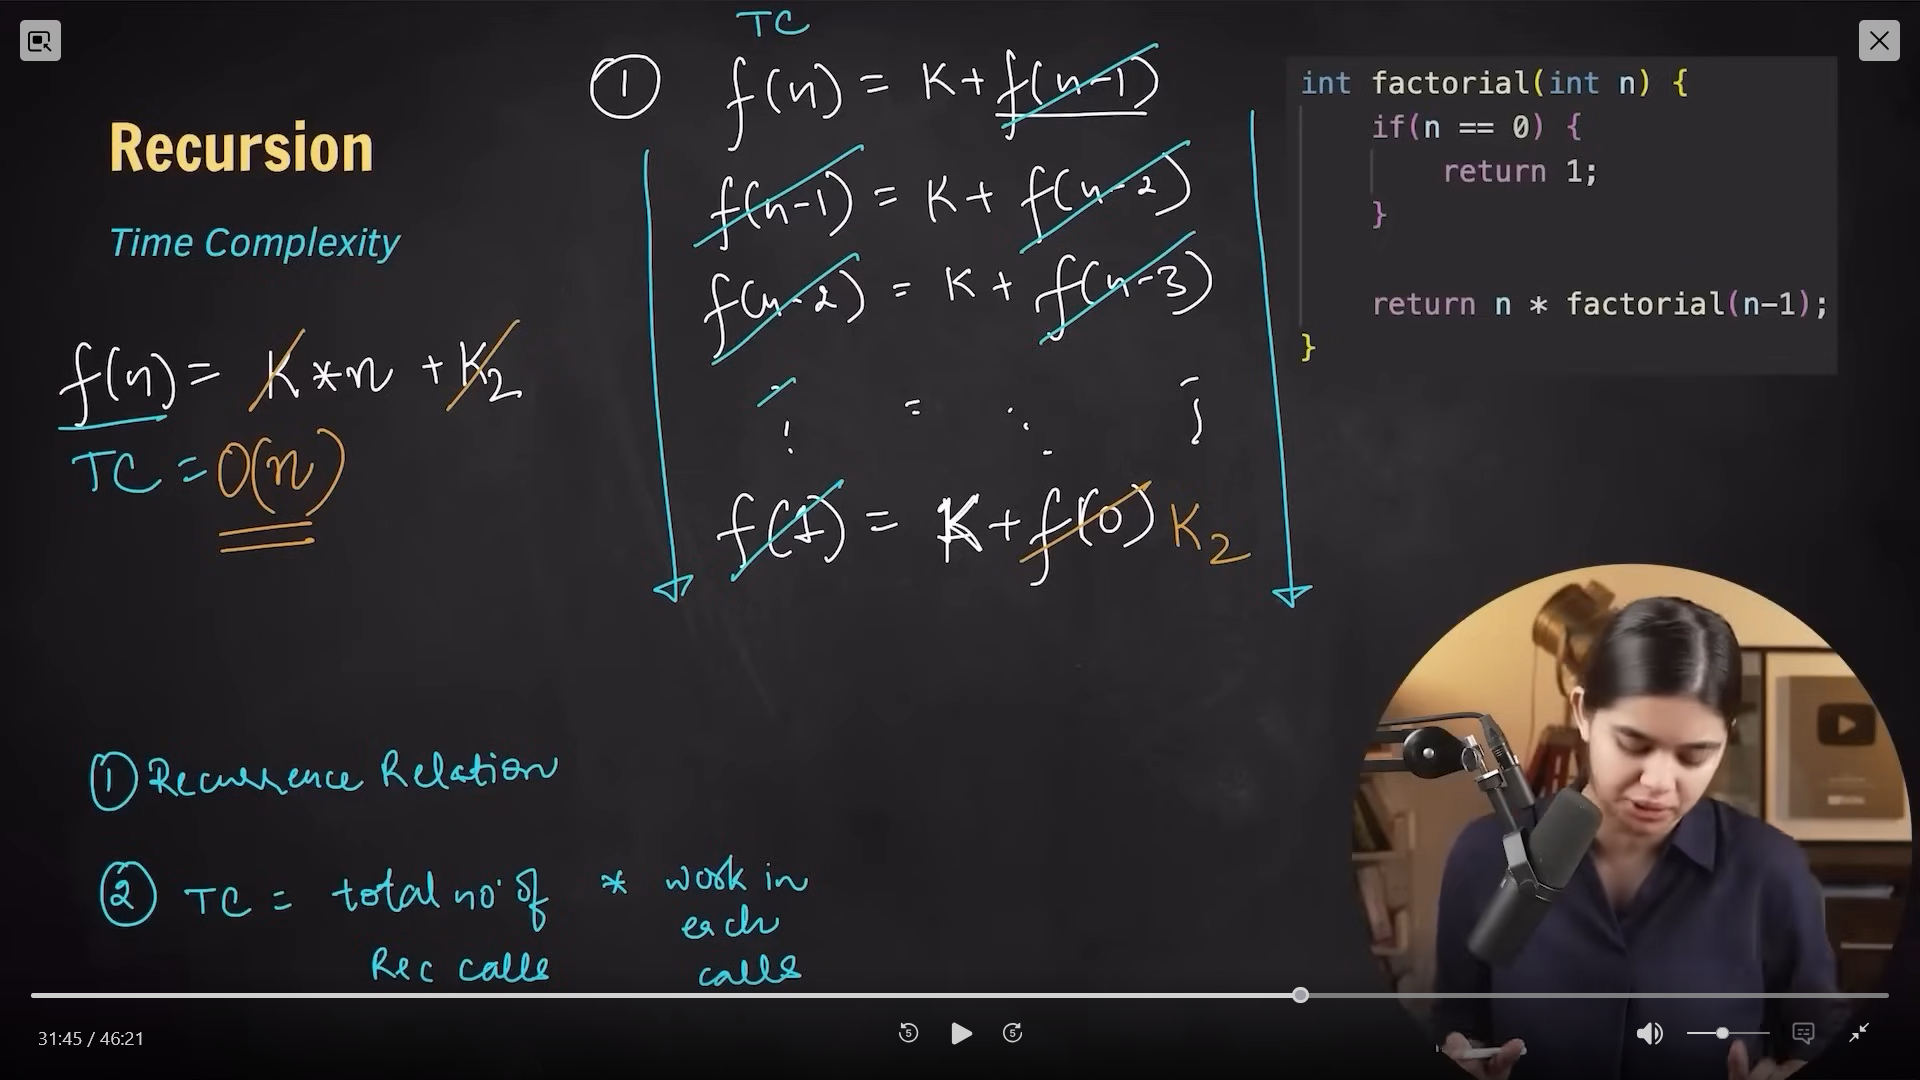 Recursion
Time Complexity
f(n) = K*n + K2
TC = O(n)
TC
① f(n) = K + f(n-1)
f(n-1) = K + f(n-2)
f(n-2) = K + f(n-3)
f(1) = K + f(0) K2
int factorial(int n) {
if(n == 0) {
return 1;
}
return n * factorial(n-1);
}
① Recurrence Relation
② TC = total no. of * work in
each
Rec calls calls
31:45 / 46:21
5
5